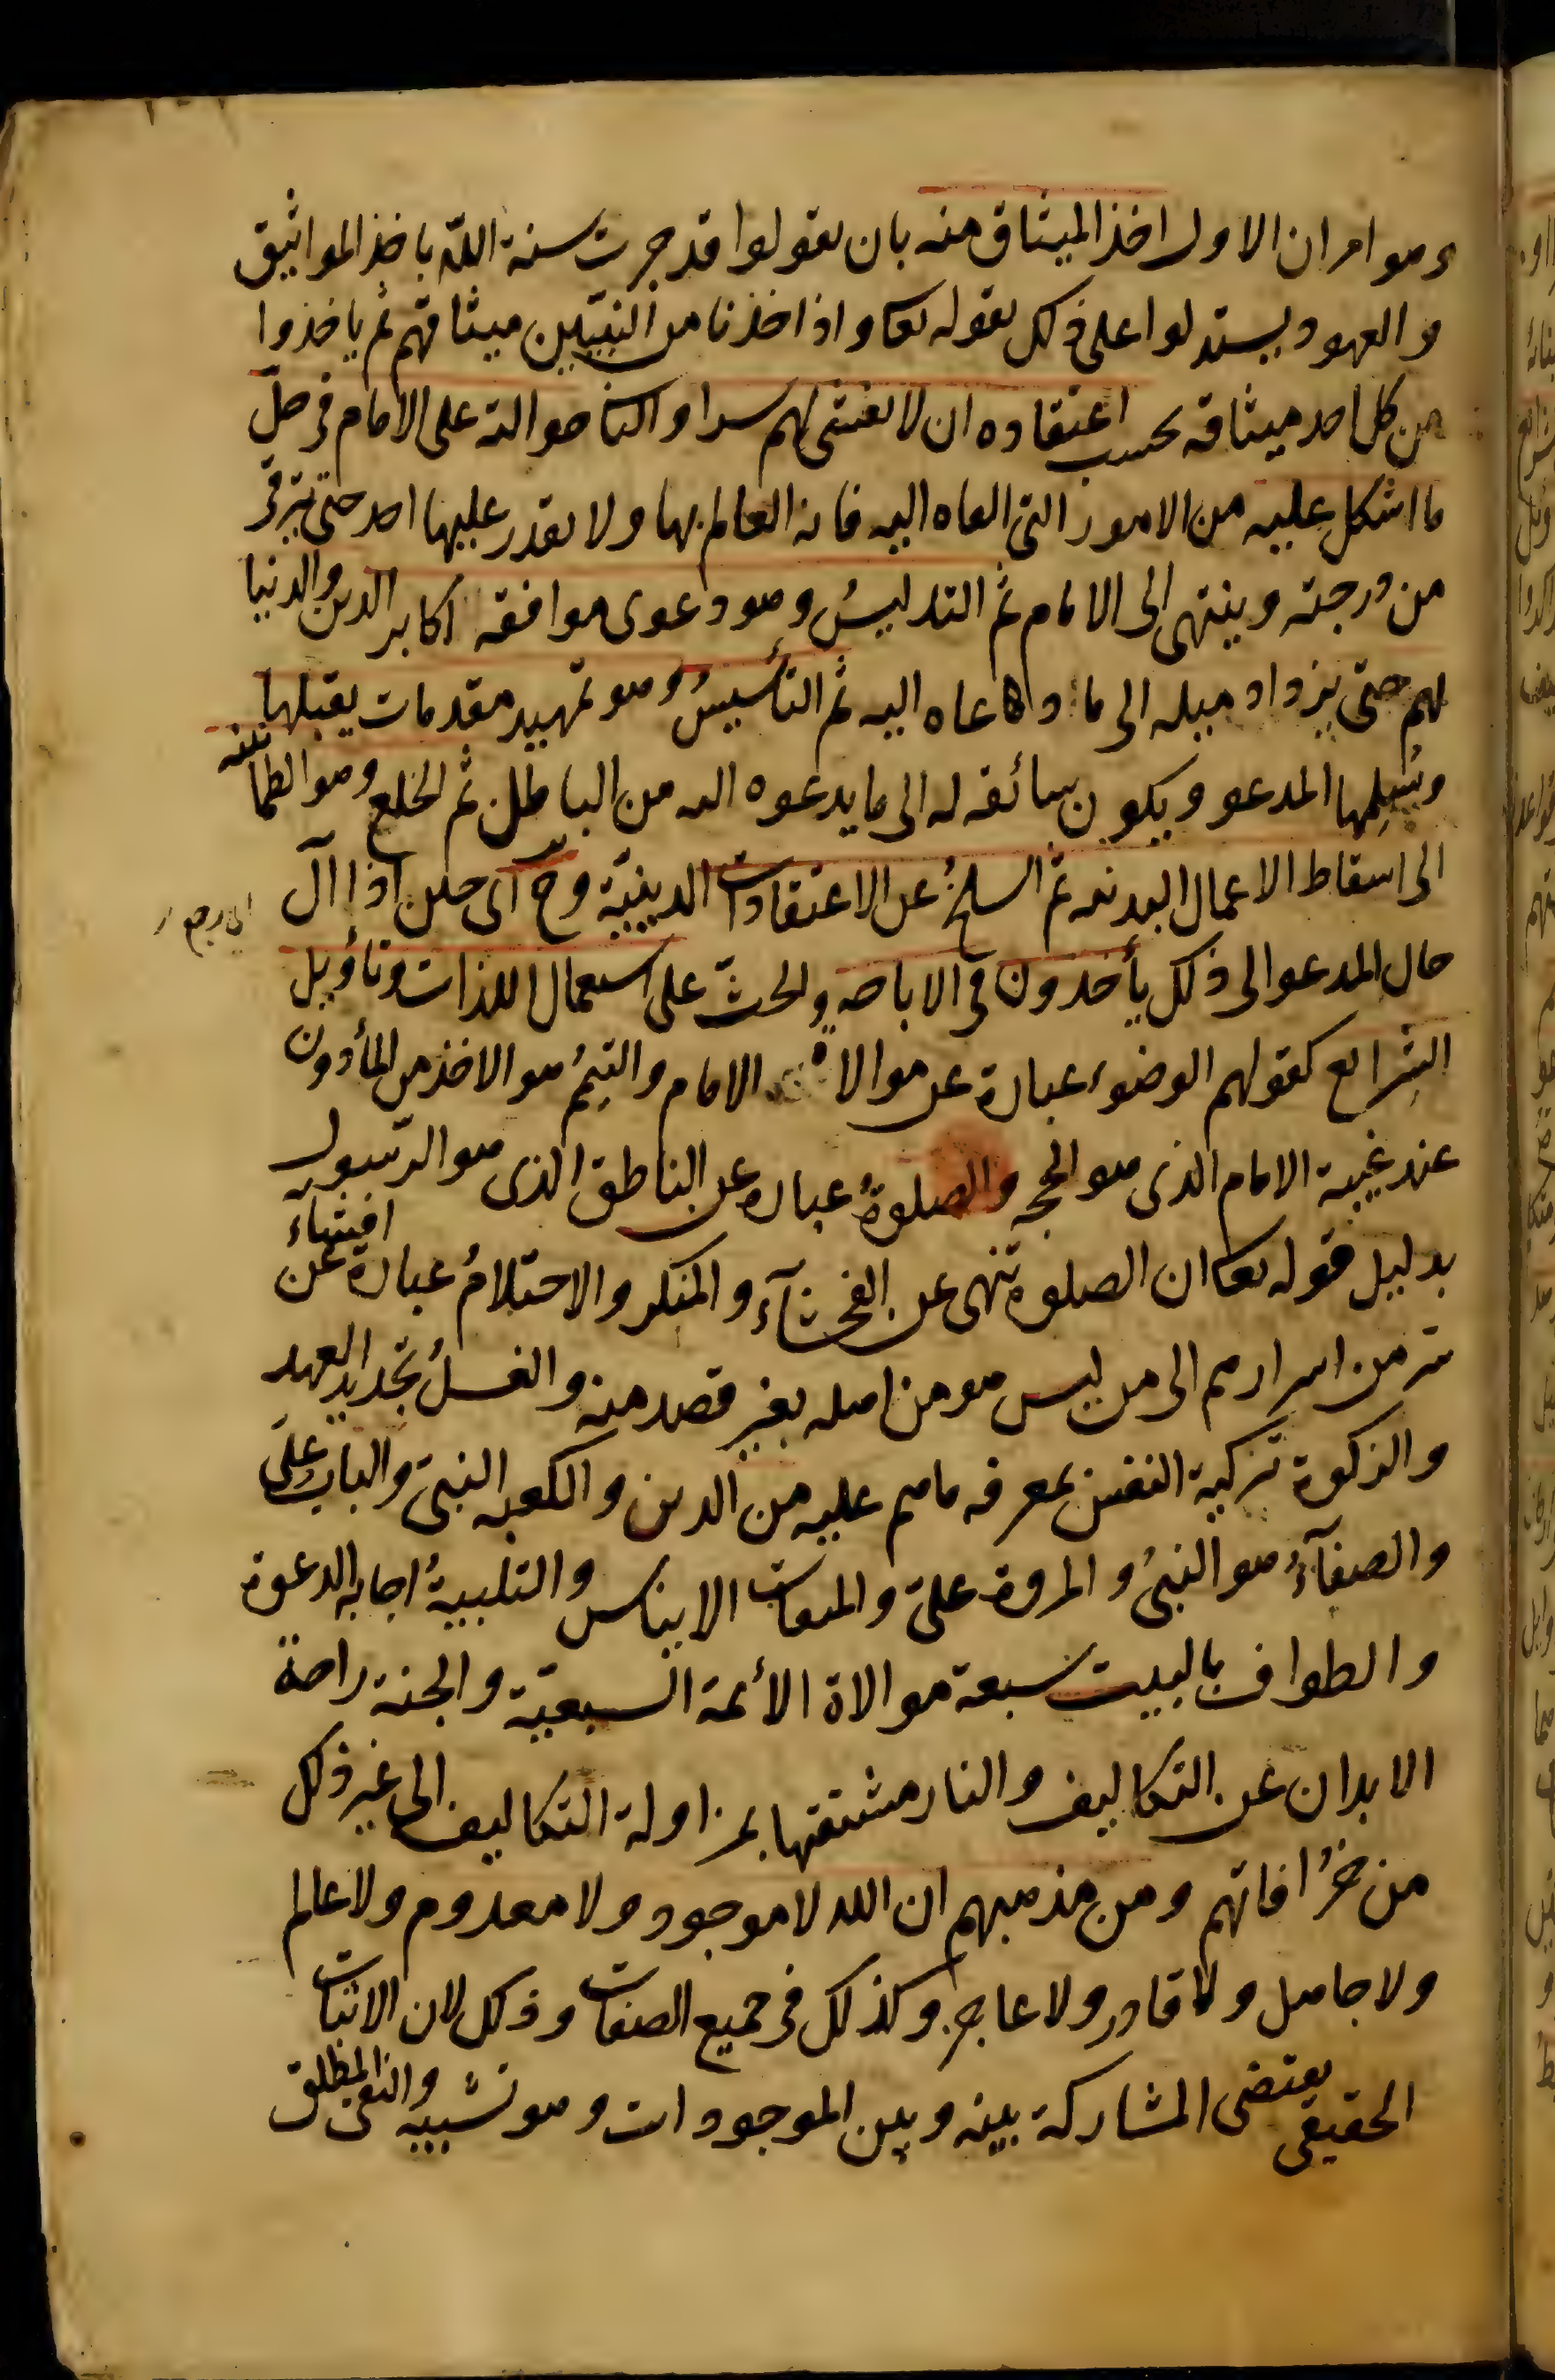 وهو امران الاول اخذ الميثاق منه بان يقولوا قد جرت سنة الله باخذ المواثيق
والعهود ويستدلوا على ذلك بقوله تعا واذ اخذنا من النبيّين ميثاقهم ثم ياخذوا
من كل احد ميثاقه بحسب اعتقاده ان لا يفشى لهم سرا والثا حوالته على الامام فى حلّ
ما اشكل عليه من الامور التى القاه اليه فانه العالم بها ولا يقدر عليها احد حتى يترقى
من درجته وينتهى الى الامام ثم التدليسُ وهو دعوى موافقه اكابر الدين والدنيا
لهم حتى يزداد ميله الى ما دعاه اليه ثم التأسيسُ وهو تمهيد مقدمات يقبلها
ويسلمها المدعو ويكون سائقه له الى ما يدعوه اليه من الباطل ثم الخلع وهو الطمانينه
الى اسقاط الاعمال البدنيه ثم السلخُ عن الاعتقادات الدينيّة وح اى حين اذا آل
اى رجع
حال المدعو الى ذلك يأخدون فى الاباحه والحثّ على استعمال اللذات وتأويل
الشرايع كقولهم الوضوء عبارة عن موالاة الامام والتيمُ هو الاخذ من المأدون
عند غيبة الامام الذى هو الحجه والصلوةُ عباره عن الناطق الذى هو الرسول
بدليل قوله تعا ان الصلوة تنهى عن الفحشآء والمنكر والاحتلامُ عبارة عن افشاء
سّر من اسرارهم الى من ليس هو من اهله بغير قصد منه والغسلُ تجديد العهد
والزكوة تزكية النفس بمعرفه ما هم عليه من الدين والكعبه النبىّ والباب علىّ
والصفآءُ هو النبىُ والمروة علىّ والميقات الايناس والتلبيةُ اجابه الدعوة
والطواف بالبيت سبعة موالاة الأئمة السبعيّة والجنة راحة
الابدان عن التكاليف والنار مشقتها بمزاولة التكاليف الى غير ذلك
من خرُافاتهم ومن مذهبهم ان الله لا موجود ولا معدوم ولا عالم
ولا جاهل ولا قادر ولا عاجز وكذلك فى جميع الصفات وذلك لان الاثبات
الحقيقى يقتضى المشاركة بينه وبين الموجودات وهو تشبيه والنفى المطلق